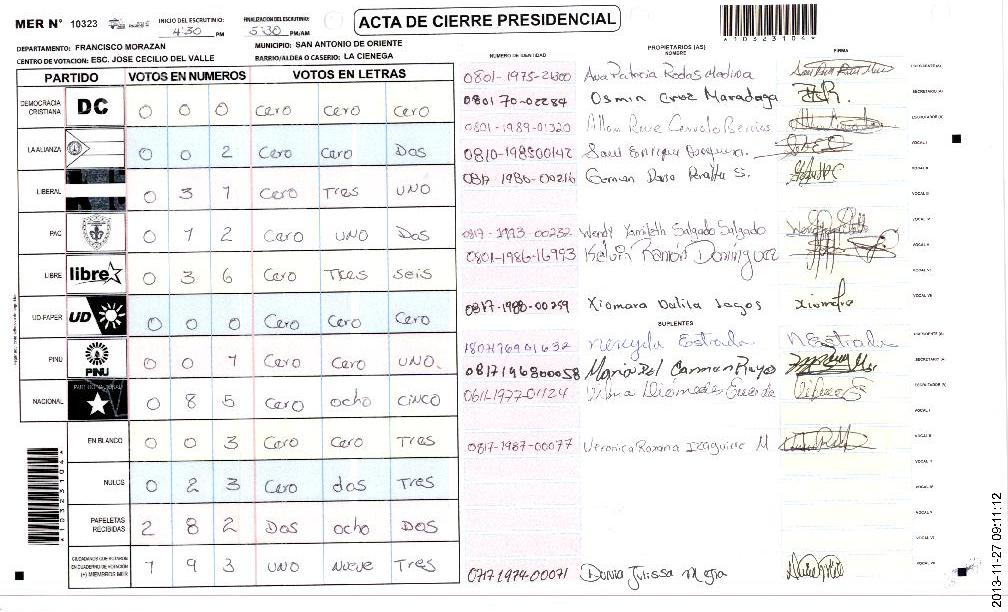 MER N° 10323 INICIO DEL ESCRUTINIO: 4:30 PM FINALIZACION DEL ESCRUTINIO: 5:30 PM/AM
ACTA DE CIERRE PRESIDENCIAL
*10323104*
DEPARTAMENTO: FRANCISCO MORAZAN MUNICIPIO: SAN ANTONIO DE ORIENTE
CENTRO DE VOTACION: ESC. JOSE CECILIO DEL VALLE BARRIO/ALDEA O CASERIO: LA CIENEGA
PARTIDO VOTOS EN NUMEROS VOTOS EN LETRAS
DEMOCRACIA CRISTIANA DC 0 0 0 Cero Cero Cero
LA ALIANZA 0 0 2 Cero Cero Dos
LIBERAL 0 3 1 Cero Tres UNO
PAC 0 1 2 Cero UNO Dos
LIBRE libre 0 3 6 Cero Tres seis
UD-FAPER UD 0 0 0 Cero Cero Cero
PINU PINU 0 0 1 Cero Cero UNO.
NACIONAL 0 8 5 Cero ocho CINCO
EN BLANCO 0 0 3 Cero Cero Tres
NULOS 0 2 3 Cero dos Tres
PAPELETAS RECIBIDAS 2 8 2 Dos ocho Dos
CIUDADANOS QUE VOTARON EN CUADERNO DE VOTACIÓN (+) MIEMBROS MER 1 9 3 UNO Nueve Tres
*10323104*
NUMERO DE IDENTIDAD PROPIETARIOS (AS) NOMBRE FIRMA
Ana Patricia Rodas Medina
SECRETARIO (A)
0801-1989-01320
ESCRUTADOR (A)
0810-198500142 Saul Enrique
VOCAL I
0817-1980-00216 German
VOCAL II
VOCAL III
0817-1993-00232 Wendy Yamileth Salgado Salgado
VOCAL IV
0801-1986-16993 Kelvin Ramón Domínguez
VOCAL V
VOCAL VI
0817-1988-00259 Xiomara Dalila Lagos Xiomara
VOCAL VII
SUPLENTES
Estrada NEstrada
0817196800058 Maria Del Carmen
SECRETARIO (A)
0611-1977-01124
ESCRUTADOR (A)
VOCAL I
0817-1987-00077 Veronica Roxana Izaguirre M
VOCAL II
VOCAL III
VOCAL IV
VOCAL V
VOCAL VI
0717197400071 Dunia Julissa Mejia
VOCAL VII
2013-11-27 09:11:12